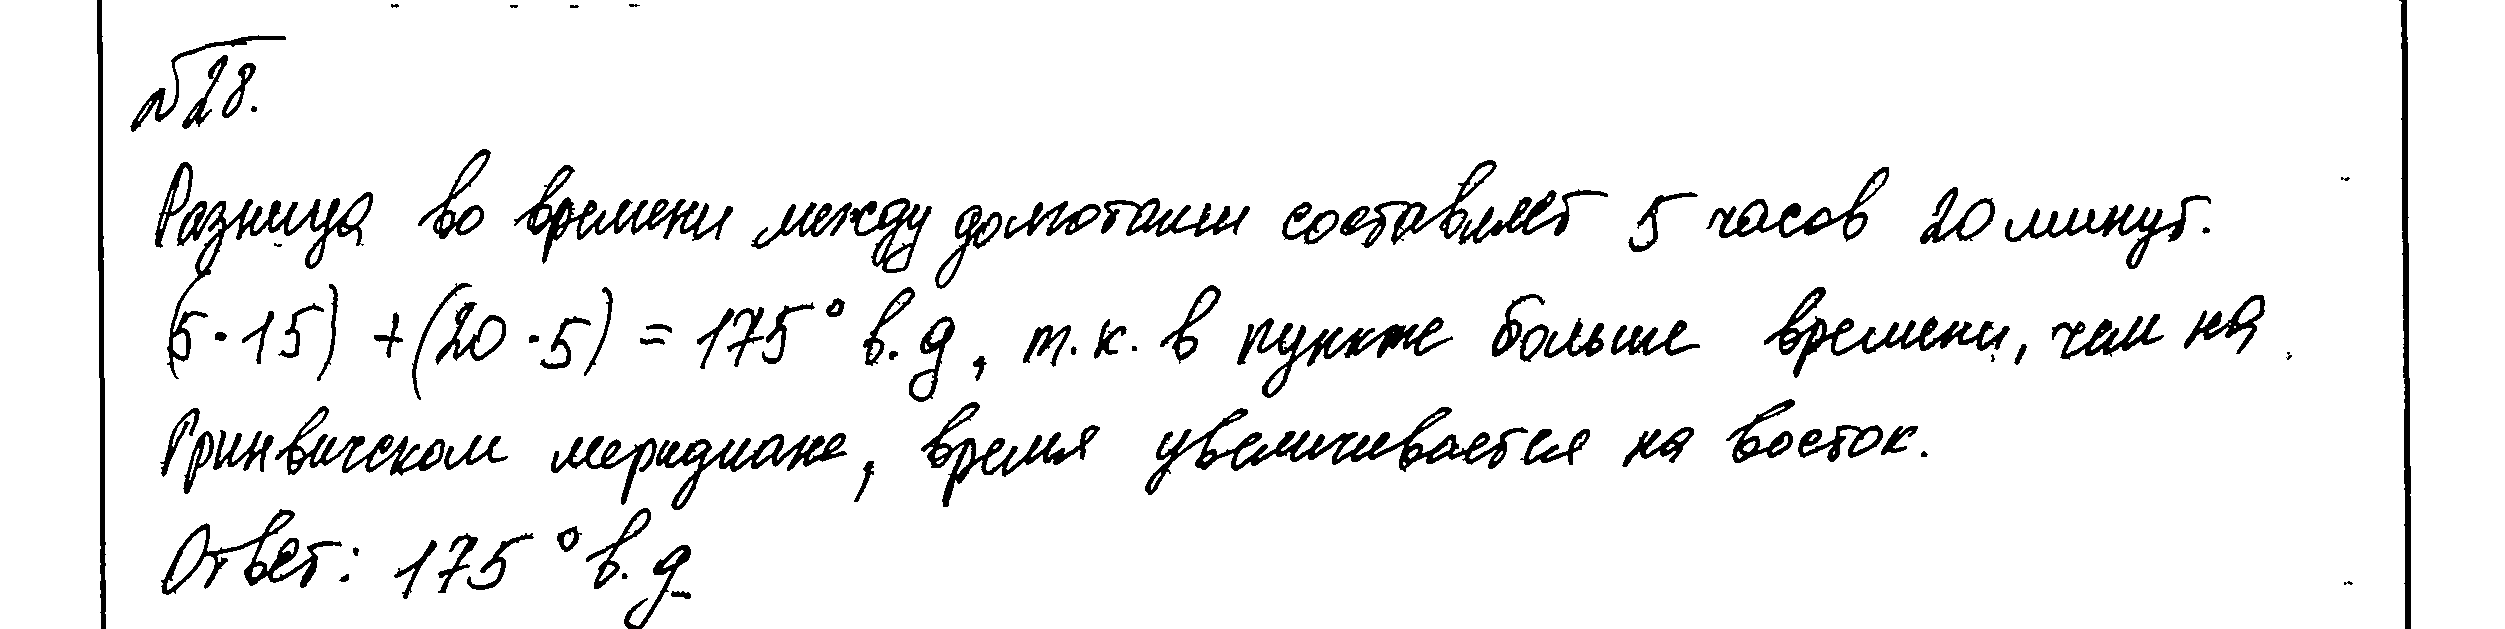 №28.
Разница во времени между долготами составляет 5 часов 20 минут.
(5·15) + (20·5) = 175° в.д, т.к. в пункте больше времени, чем на
Гринвичском меридиане, время увеличивается на восток.
Ответ: 175° в.д